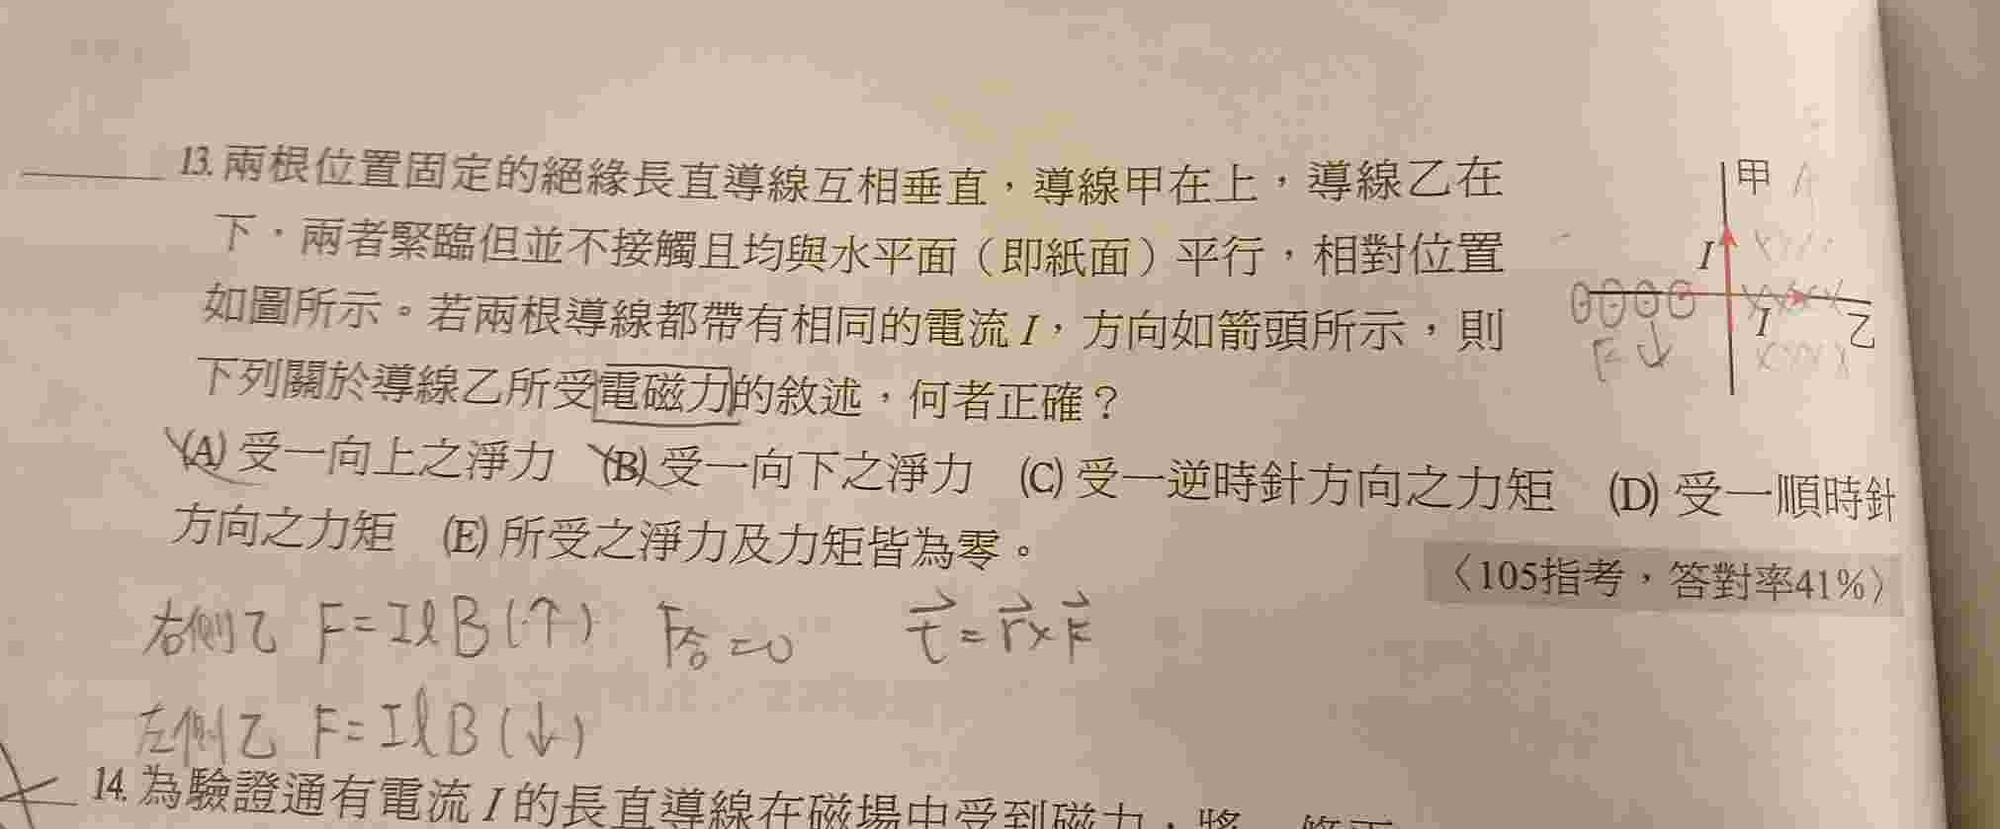 13. 兩根位置固定的絕緣長直導線互相垂直,導線甲在上,導線乙在
下,兩者緊臨但並不接觸且均與水平面(即紙面)平行,相對位置
如圖所示。若兩根導線都帶有相同的電流I,方向如箭頭所示,則
下列關於導線乙所受電磁力的敘述,何者正確?
(A) 受一向上之淨力 (B) 受一向下之淨力 (C) 受一逆時針方向之力矩 (D) 受一順時針
方向之力矩 (E) 所受之淨力及力矩皆為零。
〈105指考,答對率41%〉
甲
I
I
乙
F ↓
右側乙 F=IlB(↑) F合=0 τ=r×F
左側乙 F=IlB(↓)
14. 為驗證通有電流I的長直導線在磁場中受到磁力,將